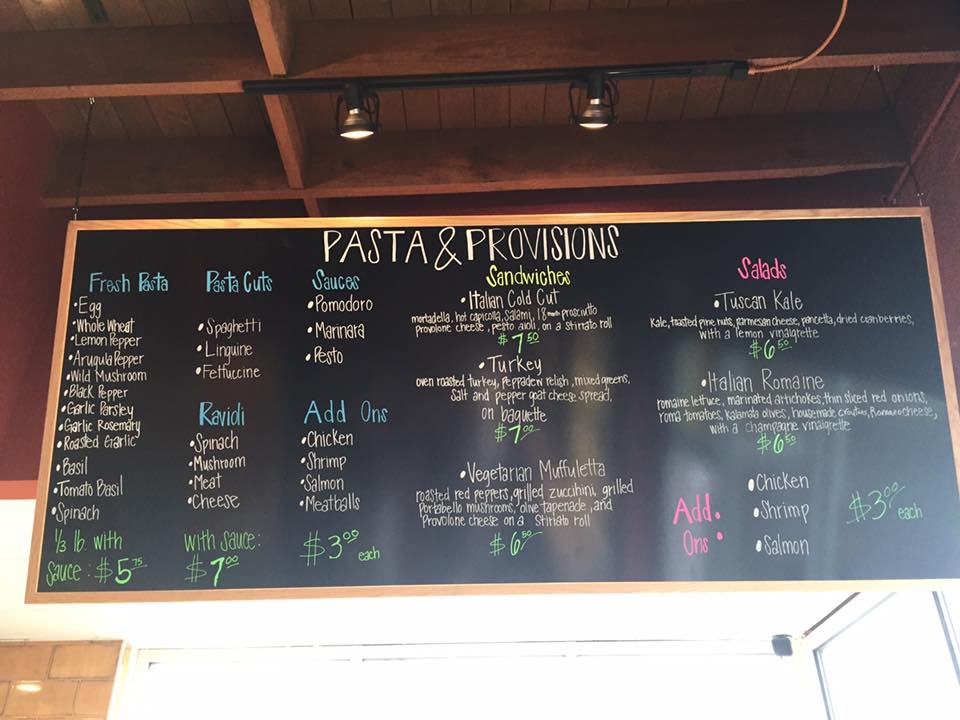 PASTA & PROVISIONS
Fresh Pasta
•Egg
•Whole Wheat
•Lemon Pepper
•Arugula Pepper
•Wild Mushroom
•Black Pepper
•Garlic Parsley
•Garlic Rosemary
•Roasted Garlic
•Basil
•Tomato Basil
•Spinach
1/3 lb. with
sauce: $5.75
Pasta Cuts
•Spaghetti
•Linguine
•Fettuccine
Ravioli
•Spinach
•Mushroom
•Meat
•Cheese
with sauce:
$7.00
Sauces
•Pomodoro
•Marinara
•Pesto
Add Ons
•Chicken
•Shrimp
•Salmon
•Meatballs
$3.00 each
Sandwiches
•Italian Cold Cut
mortadella, hot capicola, salami, 18 prosciutto
Provolone cheese, pesto aioli, on a Stirato roll
$7.50
•Turkey
oven roasted turkey, peppadew relish, mixed greens,
Salt and pepper goat cheese spread,
on baguette
$7.00
•Vegetarian Muffuletta
roasted red peppers, grilled zuccihini, grilled
Portabello mushrooms, olive tapenade, and
Provolone cheese on a Stirtato roll
$6.50
Salads
•Tuscan Kale
Kale, toasted pine nuts, parmesan cheese, pancetta, dried cranberries,
with a lemon vinaigrette
$6.50
•Italian Romaine
romaine lettuce, marinated artichokes, thin sliced red onions,
roma tomatoes, kalamata olives, housemade croutons, Romano cheese,
with a champagne vinaigrette
$6.50
Add
Ons
•Chicken
•Shrimp
•Salmon
$3.00 each